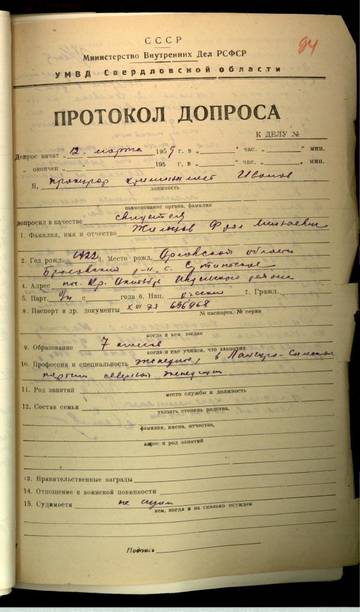 94
СССР
Министерство Внутренних Дел РСФСР
УМВД Свердловской области
ПРОТОКОЛ ДОПРОСА
К ДЕЛУ №
Допрос начат 12 марта 1959 г. в " час. " мин.
" окончен 195 г. в " час. " мин.
Я, прокурор криминалист Иванов
должность
наименование органа, фамилия
допросил в качестве свидетеля
1. Фамилия, имя и отчество
2. Год рожд. 1922 Место рожд. Орловской области
р-на с.
4. Адрес пос. Кр. Октябрь района
5. Парт. года 6. Нац. русский 7. Гражд.
8. Паспорт и др. документы 696968
№ паспорта, № серия
когда и кем, выдан
9. Образование 7 классов
когда и как учился, что закончил
10. Профессия и специальность в
партии северной экспедиции
11. Род занятий
место службы и должность
12. Состав семьи
указать степень родства,
фамилия, имена, отчества,
адрес и род занятий
13. Правительственные награды
14. Отношение к воинской повинности
15. Судимости не судим
кем, когда и на сколько осужден
Подпись